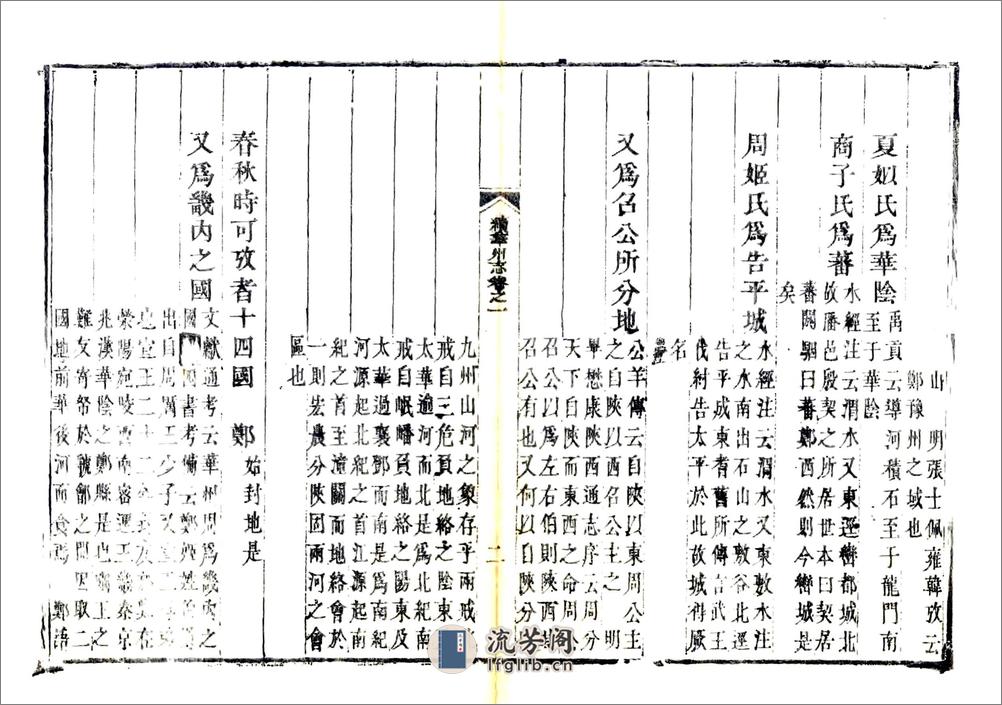 山　明張士佩雍韓攷云
鄭豫州之域也
夏姒氏爲華陰禹貢云導河積石至于龍門南
至于華陰
商子氏爲蕃水經注云渭水又東逕巒都城北
故蕃邑殷契之所居世本曰契居
蕃闞駰曰蕃鄭西然則今巒城是
矣
周姬氏爲告平城水經注云渭水又東敷水注
之水南出石山之敷谷北逕
告平城東耆舊所傳言武王
伐紂告太平於此故城得厥
名
又爲召公所分地公羊傳云自陝以東周公主
之自陝以西召公主之　明
畢懋康陝西通志序云周分
天下自陝而東西之命周公
召公以爲左右伯則陝西
召公有也又何以自陝分
續華州志卷之一
二
九州山河之象存乎兩戒
戒自三危負地絡之陰東
太華逾河而北是爲北紀南
戒自岷嶓負地絡之陽東及
太華過襄鄧而南是爲南紀
河源起北紀之首江源起南
紀之首至潼關而地絡會於
一則宏農分陝固兩河之會
區也
春秋時可攷者十四國　鄭始封地是
又爲畿內之國文獻通考云華州周爲畿內之
國　圖書考備云鄭姬姓
出自周厲王少子
也宣王二十二年
滎陽宛陵西南密邇王畿秦京
兆漢華陰之鄭縣是也幽王之
難友寄帑於虢鄶之間因取二
國地前華後河而食焉　鄭語
流芳阁
lfglib.cn